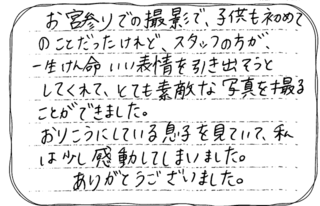 お宮参りでの撮影で、子供も初めて
のことだったけれど、スタッフの方が、
一生けん命いい表情を引き出そうと
してくれて、とても素敵な写真を撮る
ことができました。
おりこうにしている息子を見ていて、私
は少し感動してしまいました。
ありがとうございました。